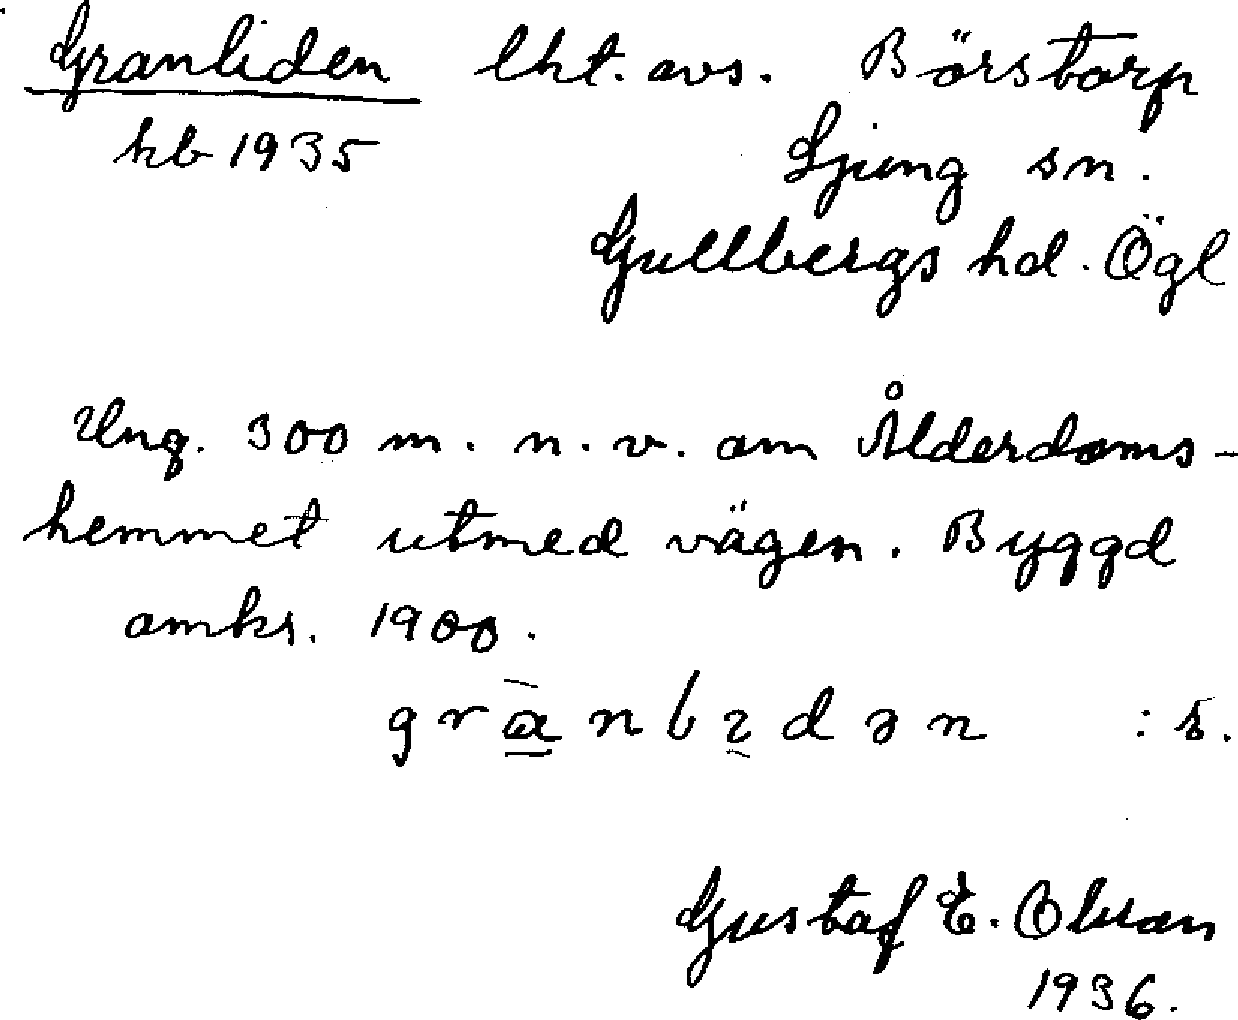 Granliden lht. avs. Börstorp
kb 1935 Ljung sn.
Gullbergs hd. Ögl
Ung. 300 m. n. v. om Ålderdoms-
hemmet utmed vägen. Byggd
omkr. 1900.
: s.
Gustaf E. Olsson
1936.